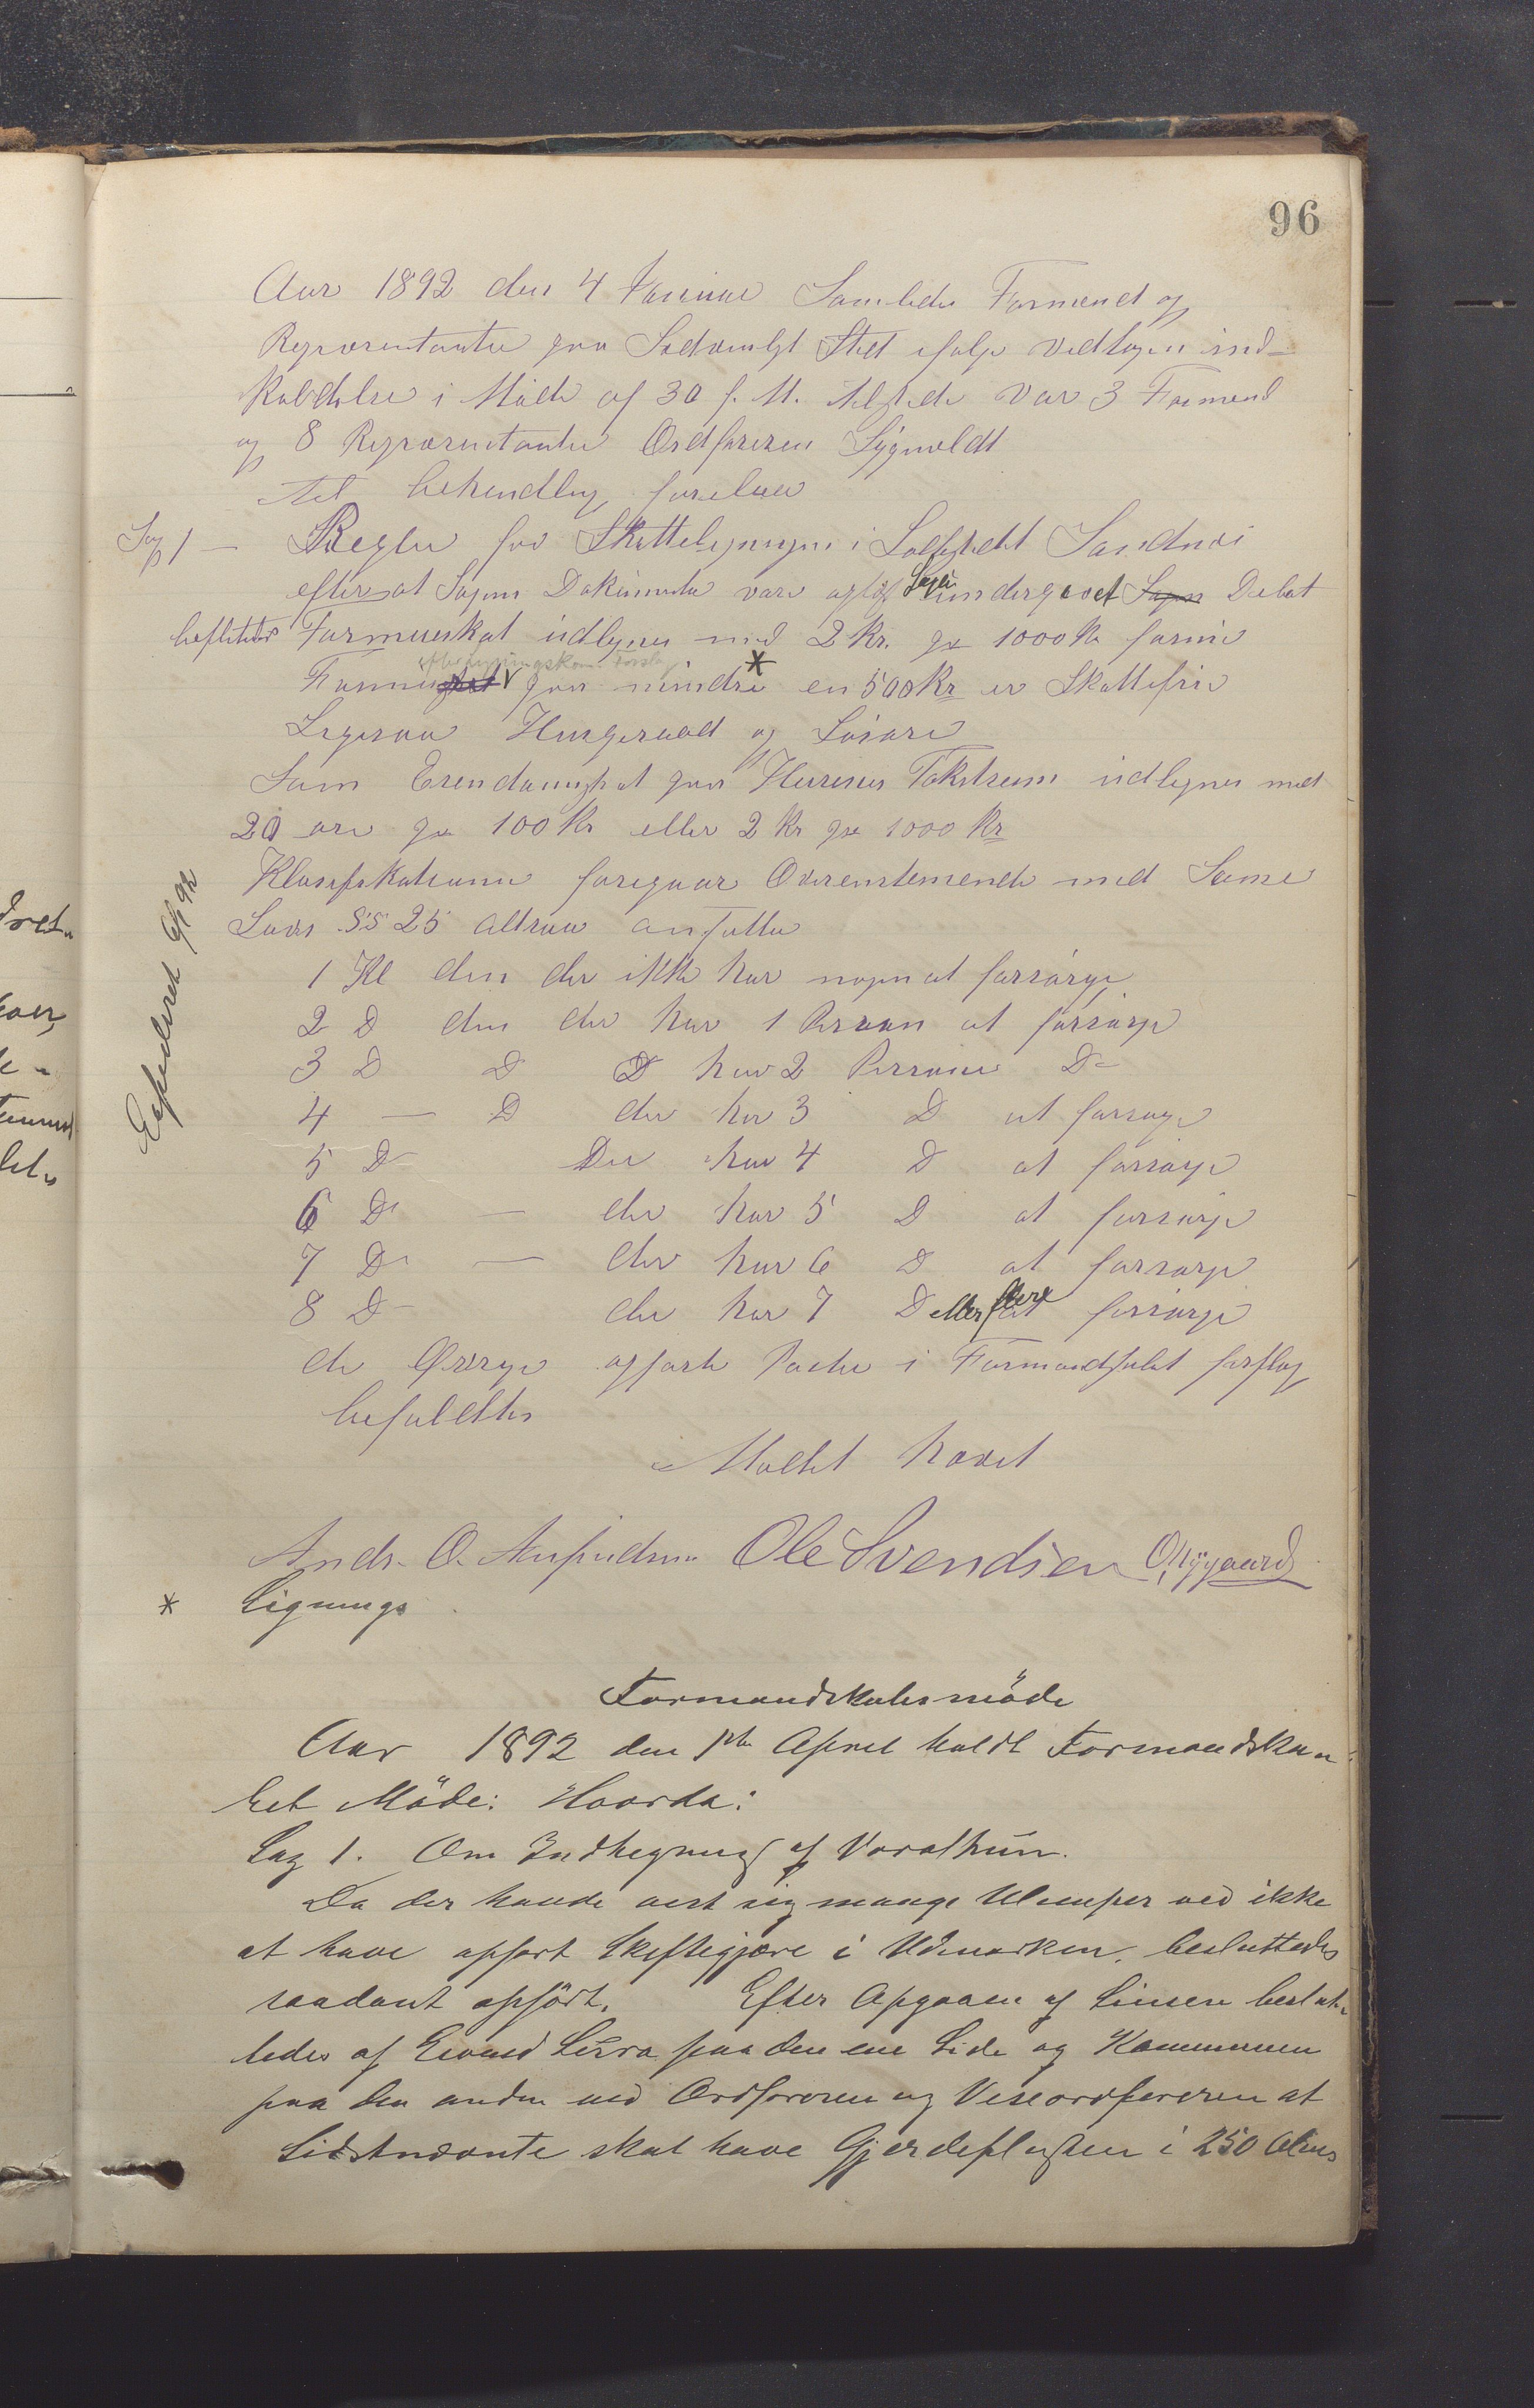 96
Aar 1892 den 4 Januar Samledes Formænd og
Repræsentanter paa Sedvanligt Sted ifølge vedtagen ind-
kaldelse i Møde af 30 f. M. tilstede var 3 Formænd
og 8 Repræsentanter Ordføreren Sygnoldt
til behandling forelaa
Sag 1 — Regler for Skatteligningen i Ladestedet Sandnæs
efter at Sagens Dokumenter vare oplæst Sagen undergaaet Sagen Debat
besluttedes Formueskat udlignes med 2 Kr. pr 1000 Kr formue
Formue paa mindre * en 500 Kr er Skattefrie
Ligesaa Husgeraad og Løsøre
Som Eiendomsskat paa Husenes Takstsum udlignes med
20 øre pr 100 Kr eller 2 Kr pr 1000 Kr
Klassifikationen foregaar Overenstemende med Samme
Lovs §§ 25 altsaa ansættes
Expederet 6/1 92
1 Kl den der ikke har nogen at forsørge
2 D den der har 1 Person at forsørge
3 D D D har 2 Personer D-
4 — D der har 3 D at forsørge
5 D- Der har 4 D at forsørge
6 D- — der har 5 D at forsørge
7 D- — der har 6 D at forsørge
8 D- der har 7 D eller flere at forsørge
de Øvrige opførte Poster i Formandskabets forslag
befuldttes
Mødet hævet
Ands. O. Ole Svendsen O Nygaard
* Lignings
Formandskabsmöde
Aar 1892 den 1ste April holdt Formandska-
bet Möde: Hvorda:
Sag 1. Om Indhegning af Voralhun.
Da der havde vist sig mange Ulemper ved ikke
at have opført Skiftegjære i Udmarken, besluttedes
saadant opfört. Efter Opgaaen af Linien beslut-
tedes af Eivind Lura paa den ene Side og Kommunen
paa den anden ved Ordføreren og Viseordføreren at
Sidstnævnte skal have Gjerdepligten i 250 Alens